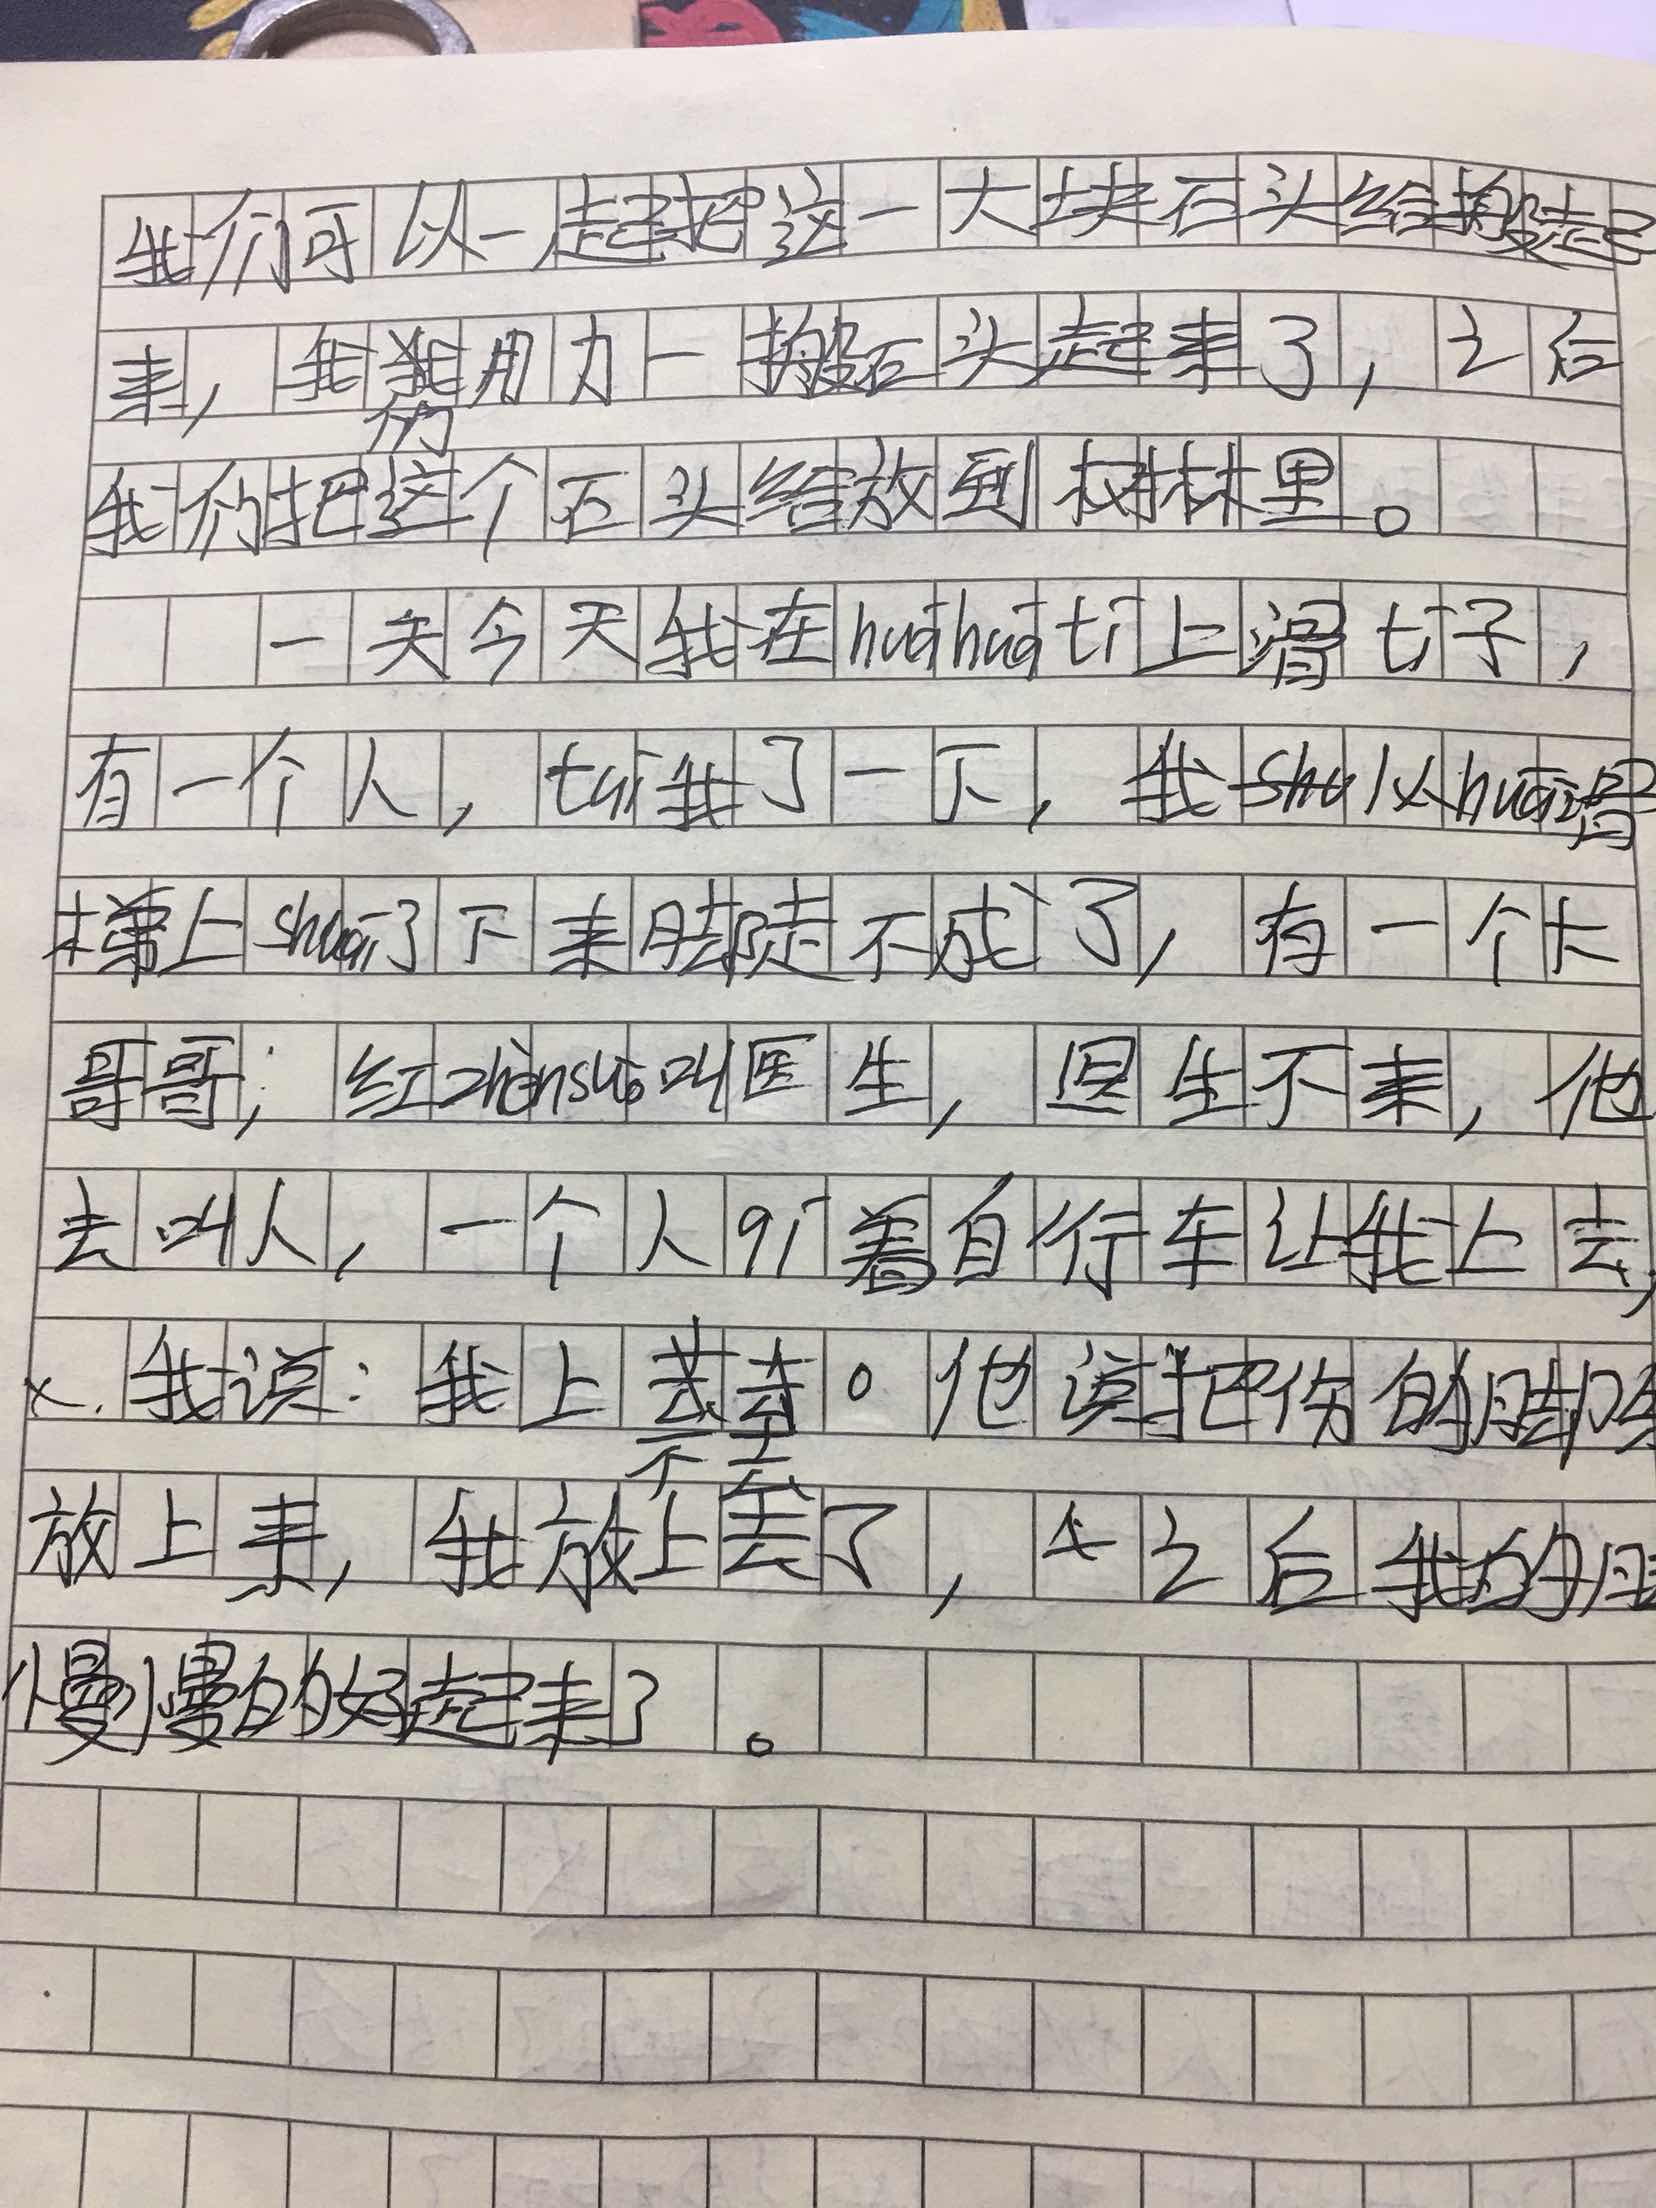 我们可以一起把这一大块石头给搬起
来，我我们用力一搬石头起来了，之后
我们把这个石头给放到树林里。
一天今天我在huáhuátī上滑tī子，
有一个人，tuī我了一下，我shuǐ从huá滑
梯上shuāi了下来脚走不成了，有一个大
哥哥；红zhēnshuō叫医生，医生不来，他
去叫人，一个人qí着自行车让我上去，
我说：我上不去。他说把你的脚
放上来，我放上去了，之后我的
慢慢的好起来了。